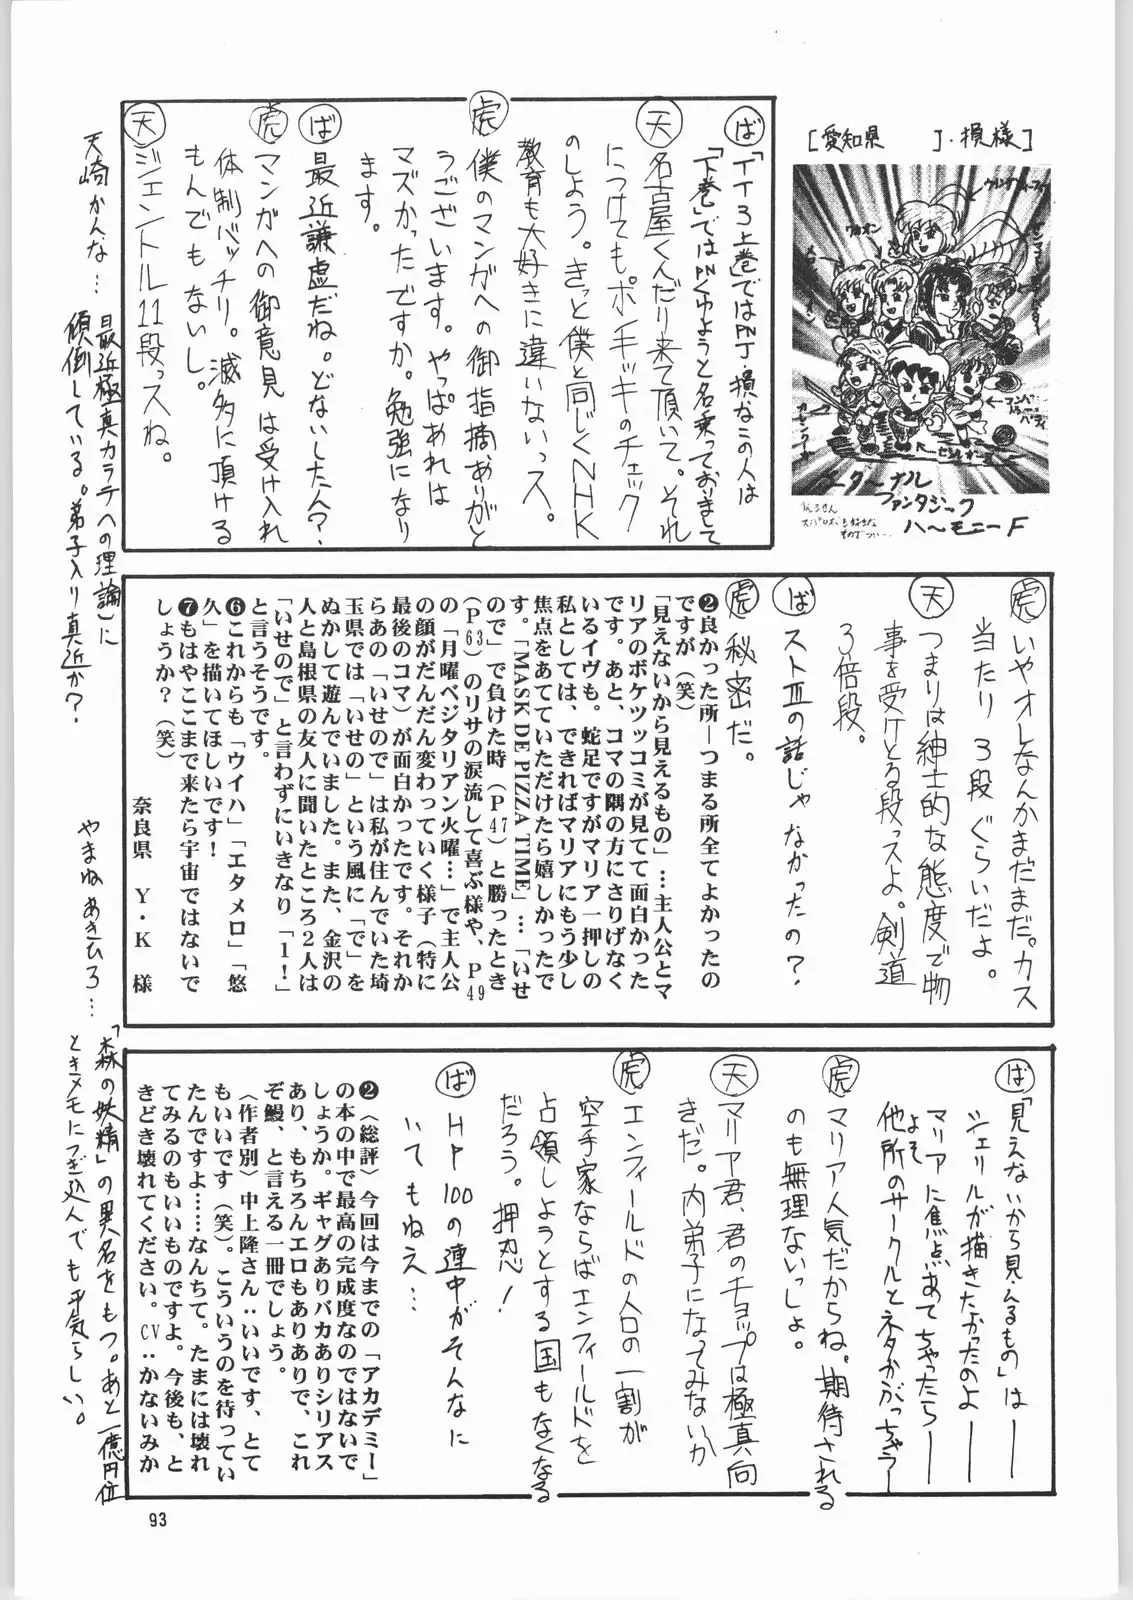 [愛知県　　　]・損様]
エターナル
ファンタジーク
ハーモニーF
ば「TT3上巻」ではPNJ・損なこの人は
「下巻」ではPNくゆようと名乗っておりまして
天 名古屋くんだり来て頂いて。それ
につけても。ポンキッキのチェック
のしよう。きっと僕と同じくNHK
教育も大好きに違いないっス。
虎 僕のマンガへの御指摘ありがと
うございます。やっぱあれは
マズかったですか。勉強になり
ます。
ば 最近謙虚だね。どないした人?
虎 マンガへの御意見は受け入れ
体制バッチリ。滅多に頂ける
もんでもないし。
天 ジェントル11段っスね。
天崎かんな…最近極真カラテへの理論に
傾倒している。弟子入り真近か?
虎 いやオレなんかまだまだ。カス
当たり3段ぐらいだよ。
天 つまりは紳士的な態度で物
事を受けとる段っスよ。剣道
3倍段。
ば ストⅢの話じゃなかったの?
虎 秘密だ。
❷良かった所―つまる所全てよかったの
ですが(笑)
「見えないから見えるもの」…主人公とマ
リアのボケツッコミが見てて面白かった
です。あと、コマの隅の方にさりげなく
いるイヴも。蛇足ですがマリア一押しの
私としては、できればマリアにもう少し
焦点をあてていただけたら嬉しかったで
す。「MASK DE PIZZA TIME」…「いせ
ので」で負けた時(P47)と勝ったとき
(P63)のリサの涙流して喜ぶ様や、P49
の「月曜ベジタリアン火曜…」で主人公
の顔がだんだん変わっていく様子(特に
最後のコマ)が面白かったです。それか
らあの「いせので」は私が住んでいた埼
玉県では「いせの」という風に「で」を
ぬかして遊んでいました。また、金沢の
人と島根県の友人に聞いたところ2人は
「いせので」と言わずにいきなり「1!」
と言うそうです。
❻これからも「ウイハ」「エタメロ」「悠
久」を描いてほしいです!
❼もはやここまで来たら宇宙ではないで
しょうか?(笑)
奈良県　Y・K　様
やまねあきひろ…「森の妖精」の異名をもつ。あと一億円位
ときメモにつぎ込んでも平気らしい。
ば「見えないから見えるもの」は――
シェリルが描きたかったのよ――
マリアに焦点あてちゃったら――
よそ
他所のサークルとネタかぶっちゃう―
虎 マリア人気だからね。期待される
のも無理ないっしょ。
天 マリア君、君のチョップは極真向
きだ。内弟子になってみないか
虎 エンフィールドの人口の一割が
空手家ならばエンフィールドを
占領しようとする国もなくなる
だろう。押忍!
ば HP100の連中がそんなに
いてもねえ…
❷〈総評〉今回は今までの「アカデミー」
の本の中で最高の完成度なのではないで
しょうか。ギャグありバカありシリアス
あり、もちろんエロもありありで、これ
ぞ鰻、と言える一冊でしょう。
〈作者別〉中上隆さん‥いいです、とて
もいいです(笑)。こういうのを待ってい
たんですよ……なんちて。たまには壊れ
てみるのもいいものですよ。今後も、と
きどき壊れてください。CV‥かないみか
93